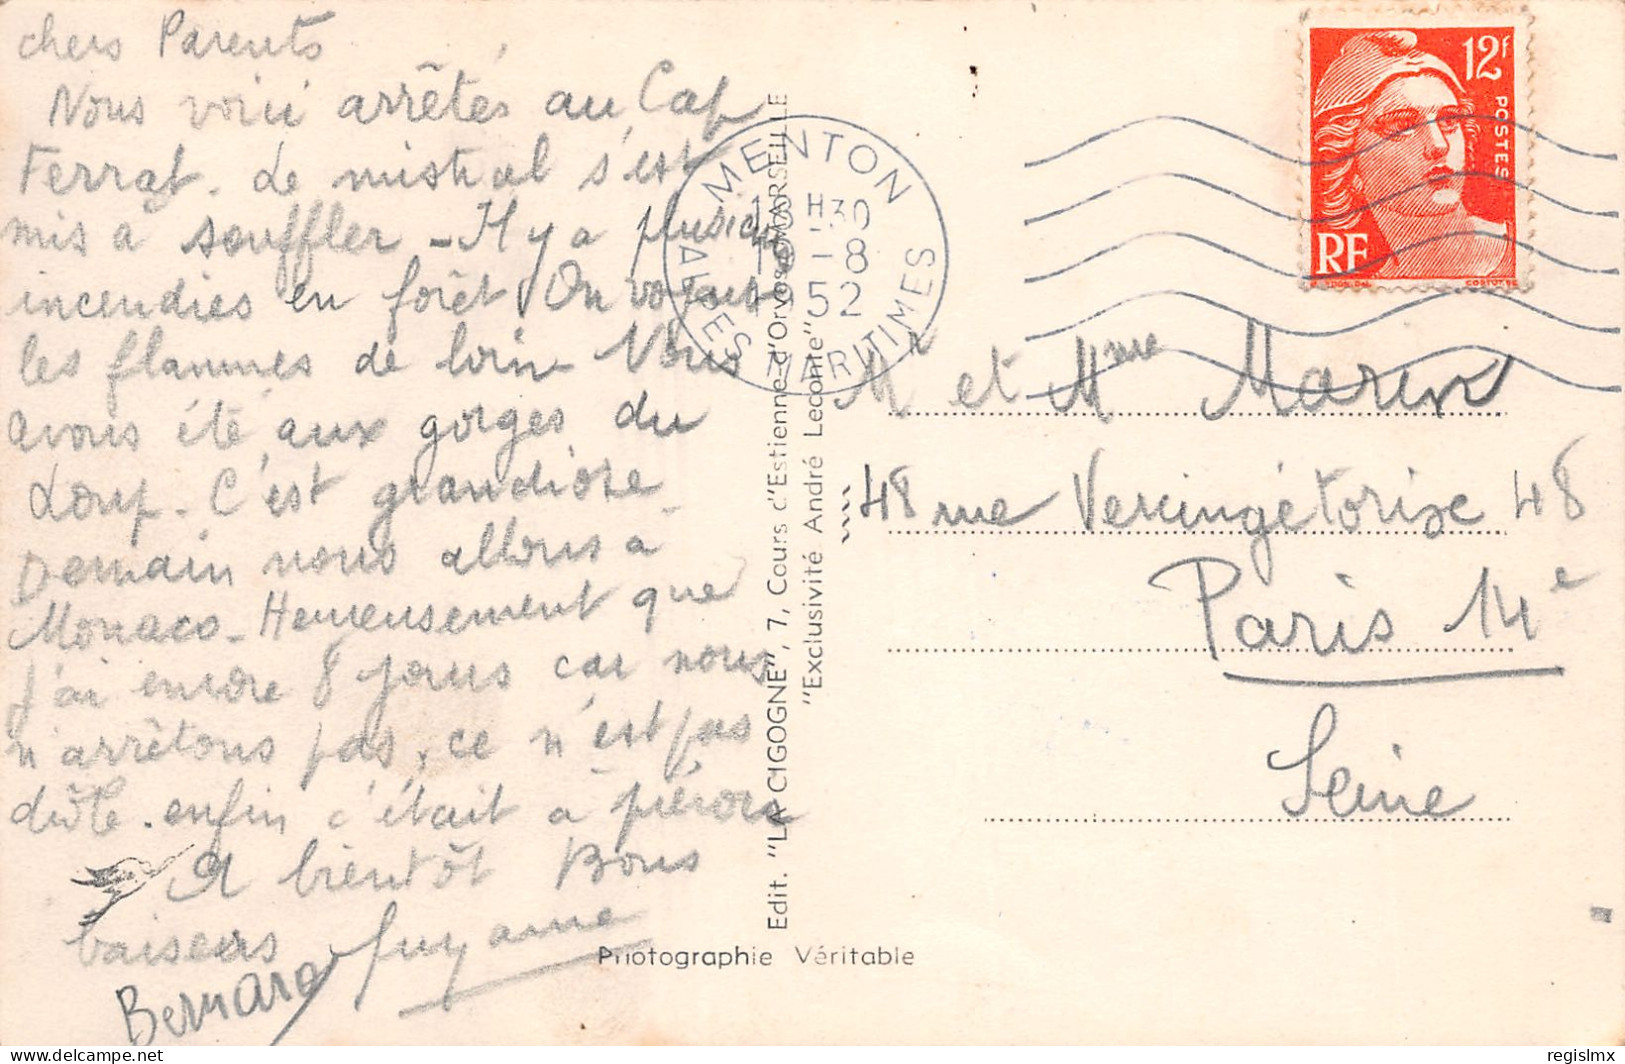 chers Parents
Nous voici arrêtés au Cap
Ferrat. Le mistral s'est
mis à souffler - Il y a plusieurs
incendies en forêt. On voyait
les flammes de loin - Nous
avons été aux gorges du
Loup. C'est grandiose -
Demain nous allons à
Monaco - Heureusement que
j'ai encore 8 jours car nous
n'arrêtons pas, ce n'est pas
drôle. enfin c'était à prévoir
A bientôt Bons
baisers Guyanne
Bernard
Edit. "LA CIGOGNE", 7, Cours d'Estienne-d'Orves - MARSEILLE
"Exclusivité André Leconte"
Photographie Véritable
MENTON
18 H30
-8
1952
ALPES MARITIMES
12F
POSTES
RF
M et Mme Marin
48 rue Vercingétorixe 48
Paris 14e
Seine
regislmx
© www.delcampe.net